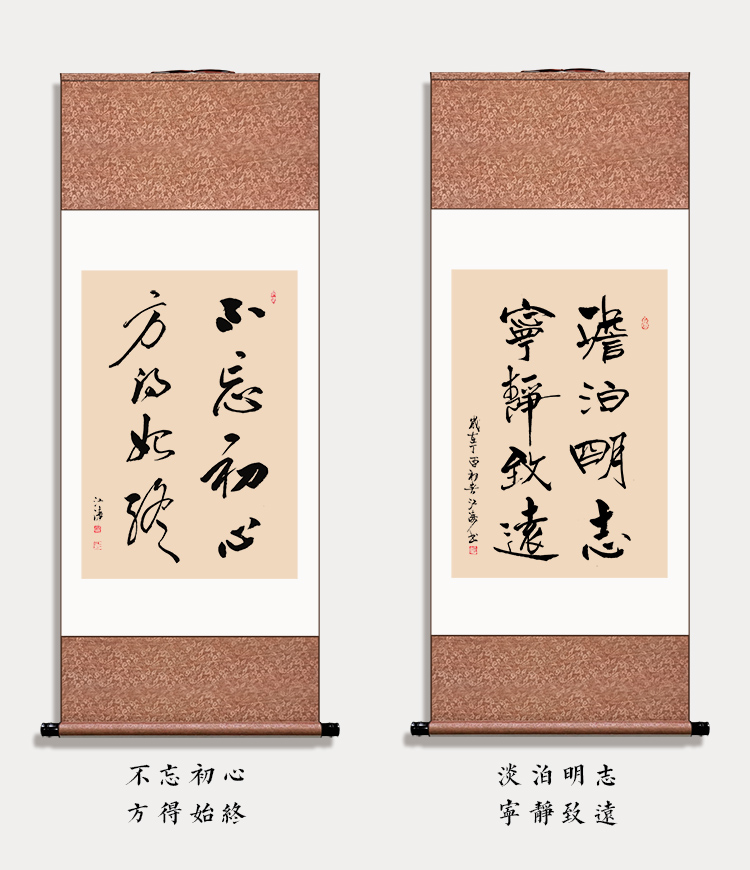 不忘初心
方得始終
江海
澹泊明志
寧靜致遠
歲在丁酉初春江海書
不忘初心
方得始終
淡泊明志
寧靜致遠